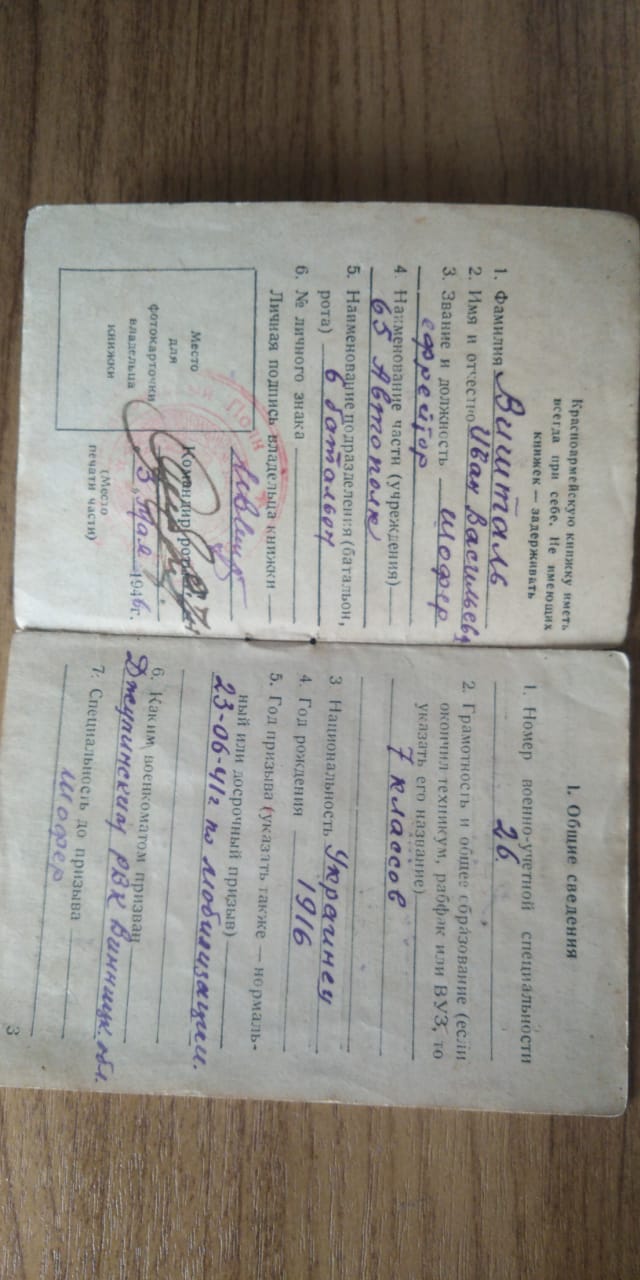 Красноармейскую книжку иметь
всегда при себе. Не имеющих
книжек — задерживать
1. Фамилия Вишталь
2. Имя и отчество Иван Васильеви
3. Звание и должность шофер
ефрейтор
4. Наименование части (учреждения)
65 Автополк
5. Наименование подразделения (батальон,
рота) 6 батальон
6. № личного знака
Личная подпись владельца книжки
Место
для
фотокарточки
владельца
книжки
Командир роты
3 мая 1946г.
(Место
печати части)
1. Общие сведения
1. Номер военно-учетной специальности
26.
2. Грамотность и общее образование (если
окончил техникум, рабфак или ВУЗ, то
указать его название)
7 классов
3 Национальность Украинец
4. Год рождения 1916
5. Год призыва (указать также — нормаль-
ный или досрочный призыв)
23-06-41г по мобилизации.
6. Каким военкоматом призван
РВК Винницк. обл.
7. Специальность до призыва
шофер
3